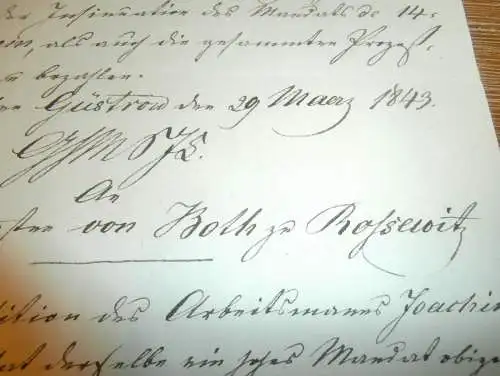 der Insinuation des Mandats de 14.
als auch die gesammten Prozeß-
zu bezahlen.
Güstrow den 29 Maerz 1843.
An
von Both zu Rossewitz
des Arbeitsmannes Joachim
derselbe ein hohes Mandat obige